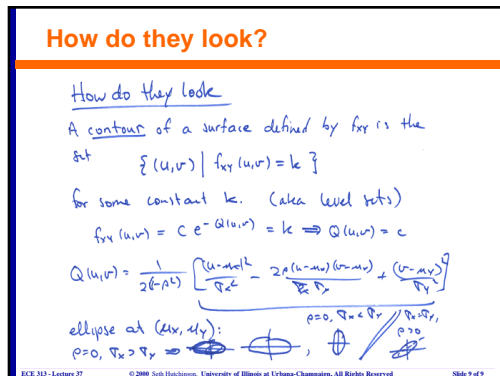 How do they look?
How do they look
A contour of a surface defined by fxy is the
set {(u,v) | fxy(u,v) = k}
for some constant k. (aka level sets)
fxy(u,v) = C e^{-Q(u,v)} = k ⇒ Q(u,v) = c
Q(u,v) = 1/(2(1-ρ²)) [(u-μx)²/σx² - 2ρ(u-μx)(v-μy)/σx σy + (v-μy)²/σy²]
ρ=0, σx < σy σx=σy,
ellipse at (μx, μy): ρ>0
ρ=0, σx > σy ⇒ ,
ECE 313 - Lecture 37 © 2000 Seth Hutchinson, University of Illinois at Urbana-Champaign, All Rights Reserved Slide 9 of 9